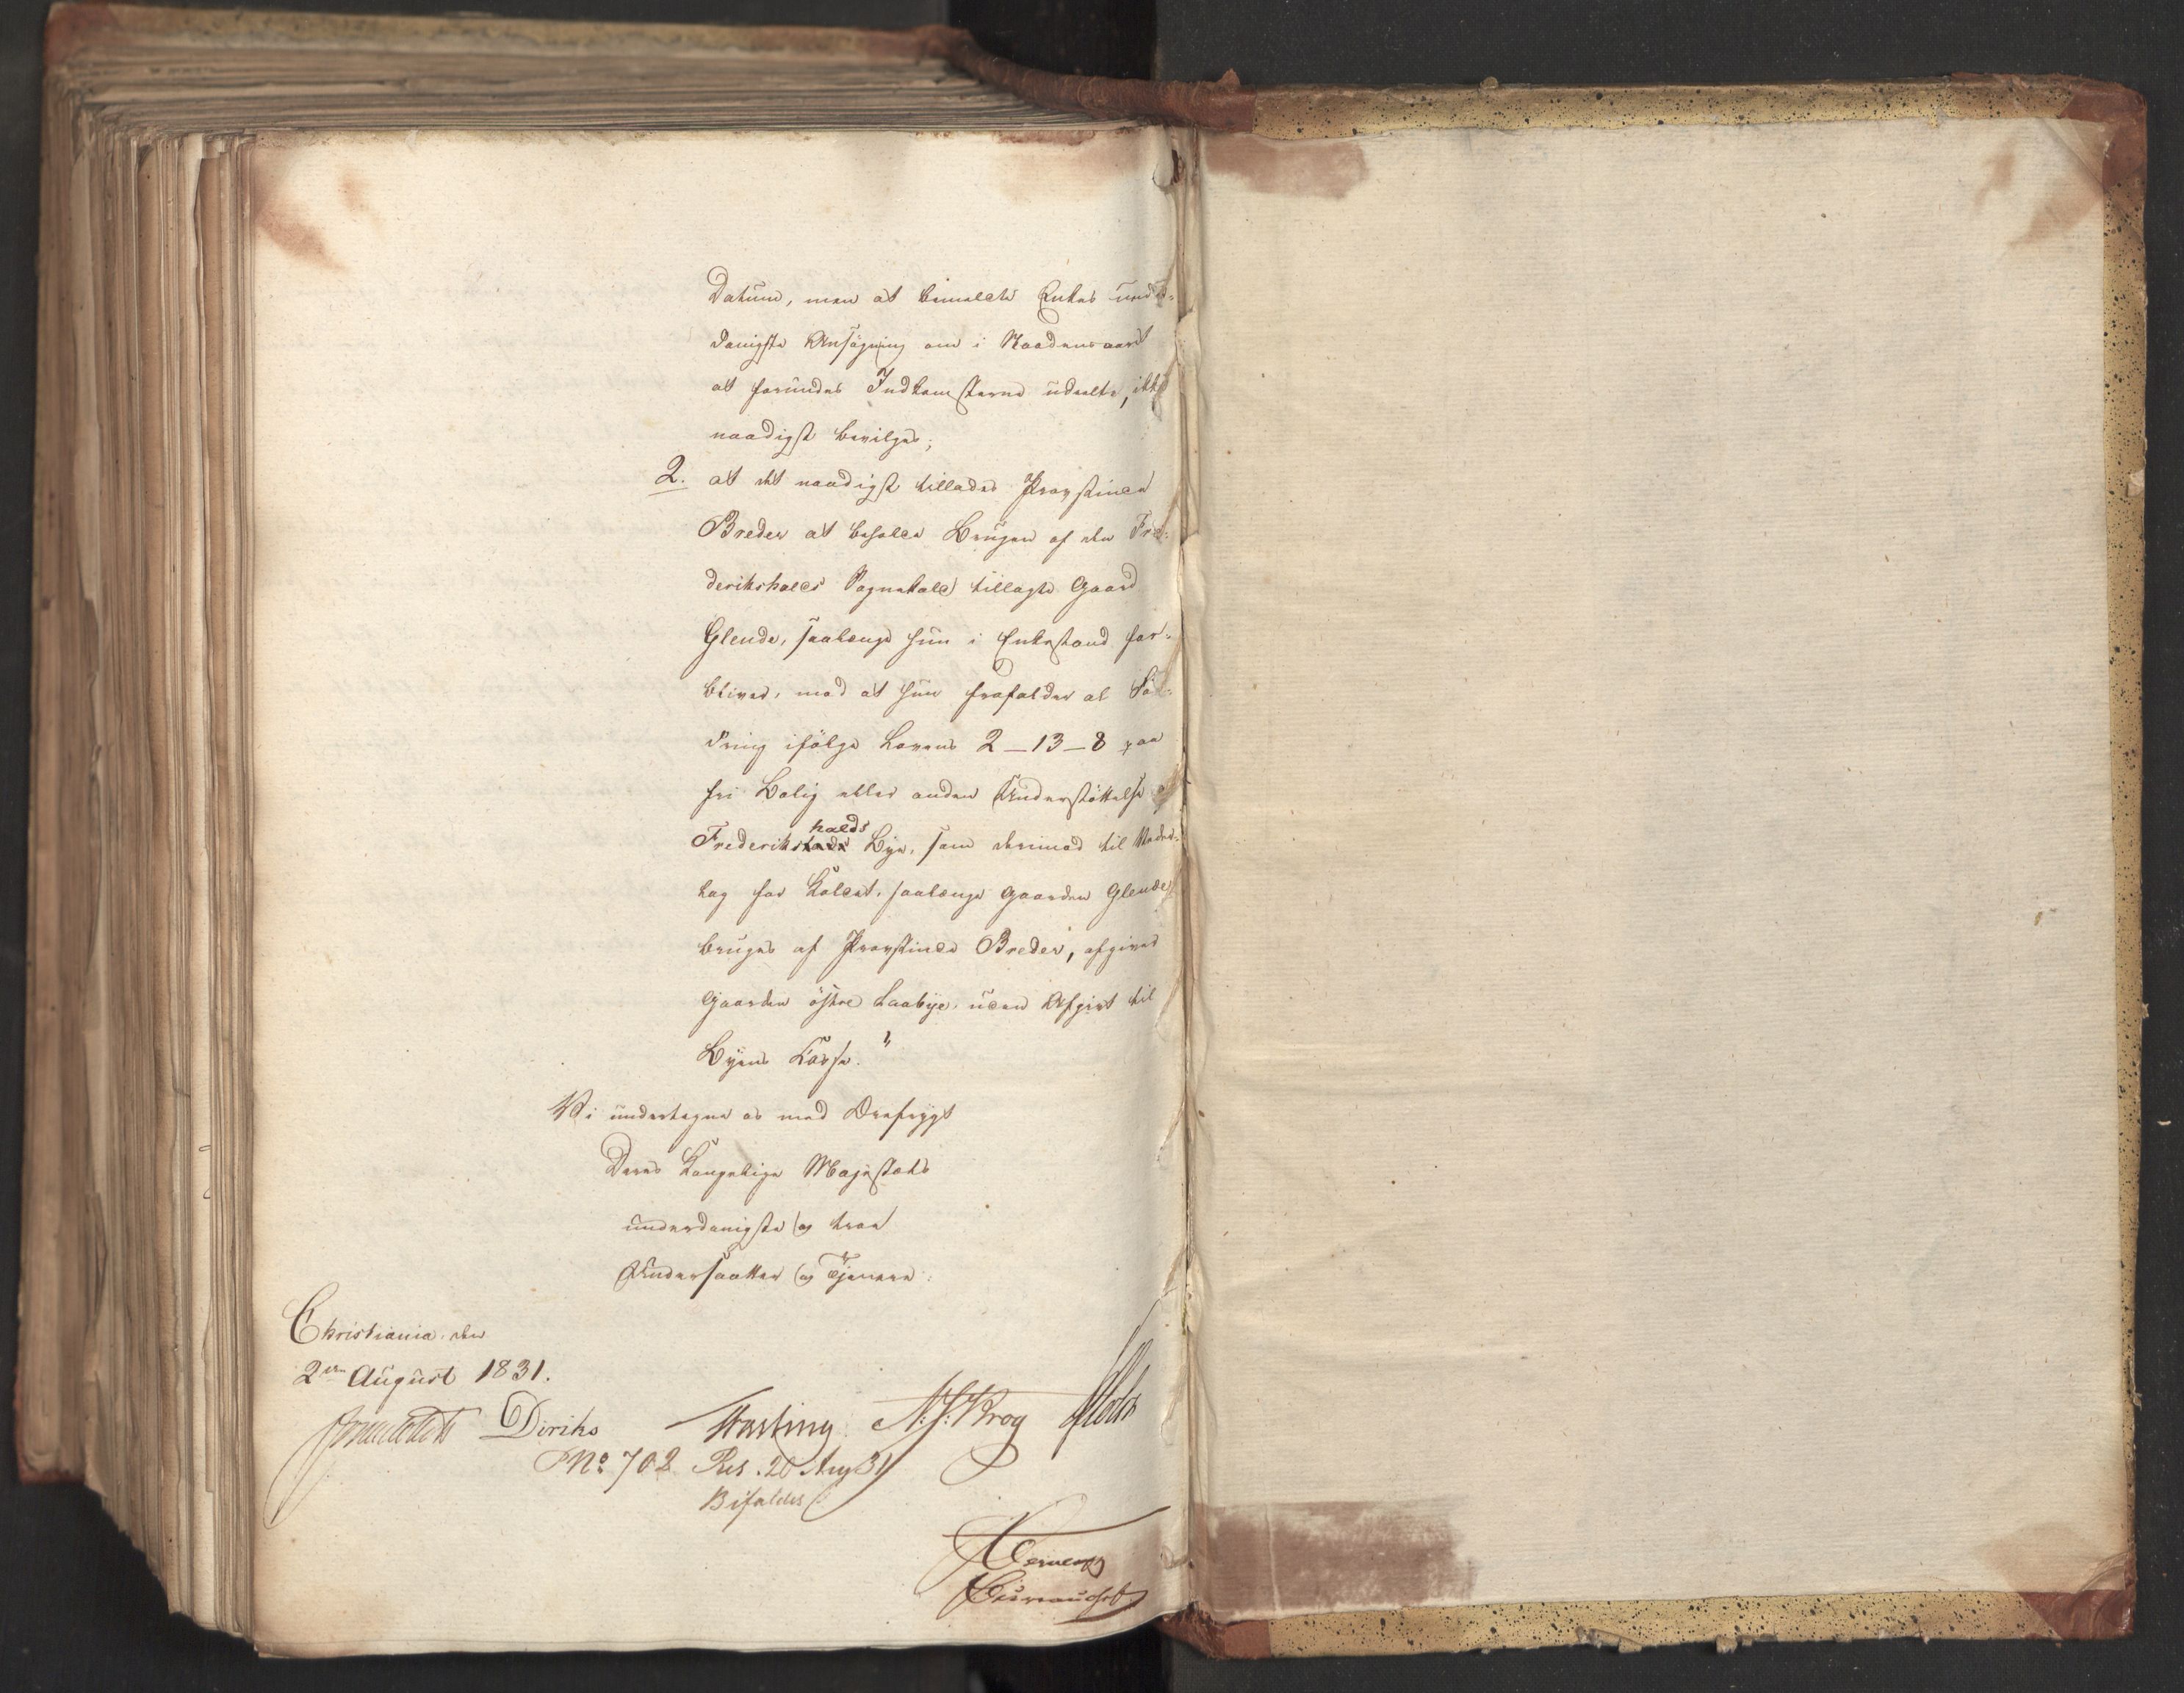 Datum, men at bemeldte Enkes under-
danigste Ansøgning om i Naadensaaret
at forundes Indkomsterne udeelte, ikke
naadigst bevilges;
2. at det naadigst tillades Provstinde
Breder at beholde Brugen af den Fre-
derikshalds Sognekald tillagte Gaard
Glende, saalænge hun i Enkestand for-
bliver, mod at hun frafalder al For-
dring ifølge Lovens 2-13-8 paa
fri Bolig eller anden Understøttelse af
Frederikshalds Bye, som derimod til Veder-
lag for Kaldet, saalænge Gaarden Glende
bruges af Provstinde Breder, afgiver
Gaarden østre Laabye, uden Afgivt til
Byens Casse."
Vi undertegne os med Ærefrygt
Deres Kongelige Majestæts
underdanigste og troe
Undersaatter og Tjenere.
Christiania, den
2den August 1831.
Diriks N. J. Krog
No 702 Res. 20 Aug 31
Bifaldes